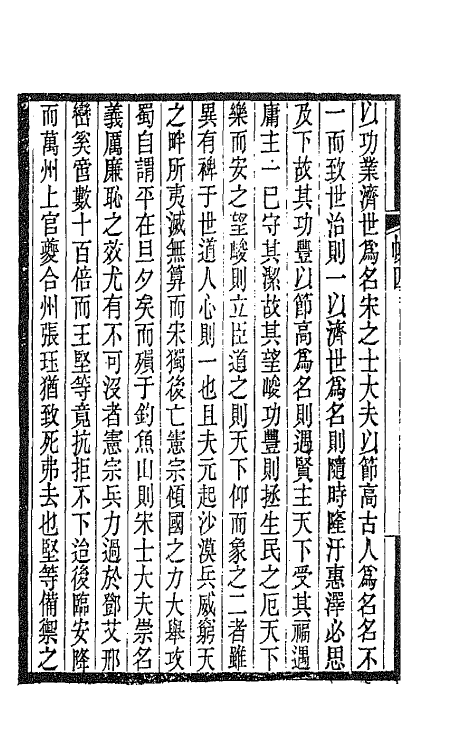 以功業濟世爲名宋之士大夫以節高古人爲名名不
一而致世治則一以濟世爲名則隨時隆汙惠澤必思
及下故其功豐以節高爲名則遇賢主天下受其福遇
庸主一巳守其潔故其望峻功豐則拯生民之厄天下
樂而安之望峻則立臣道之則天下仰而象之二者雖
異有裨于世道人心則一也且夫元起沙漠兵威窮天
之畔所夷滅無算而宋獨後亡憲宗傾國之力大舉攻
蜀自謂平在旦夕矣而殞于釣魚山則宋士大夫崇名
義厲廉恥之效尤有不可沒者憲宗兵力過於鄧艾邢
巒奚啻數十百倍而王堅等竟抗拒不下迨後臨安降
而萬州上官夔合州張珏猶致死弗去也堅等備禦之